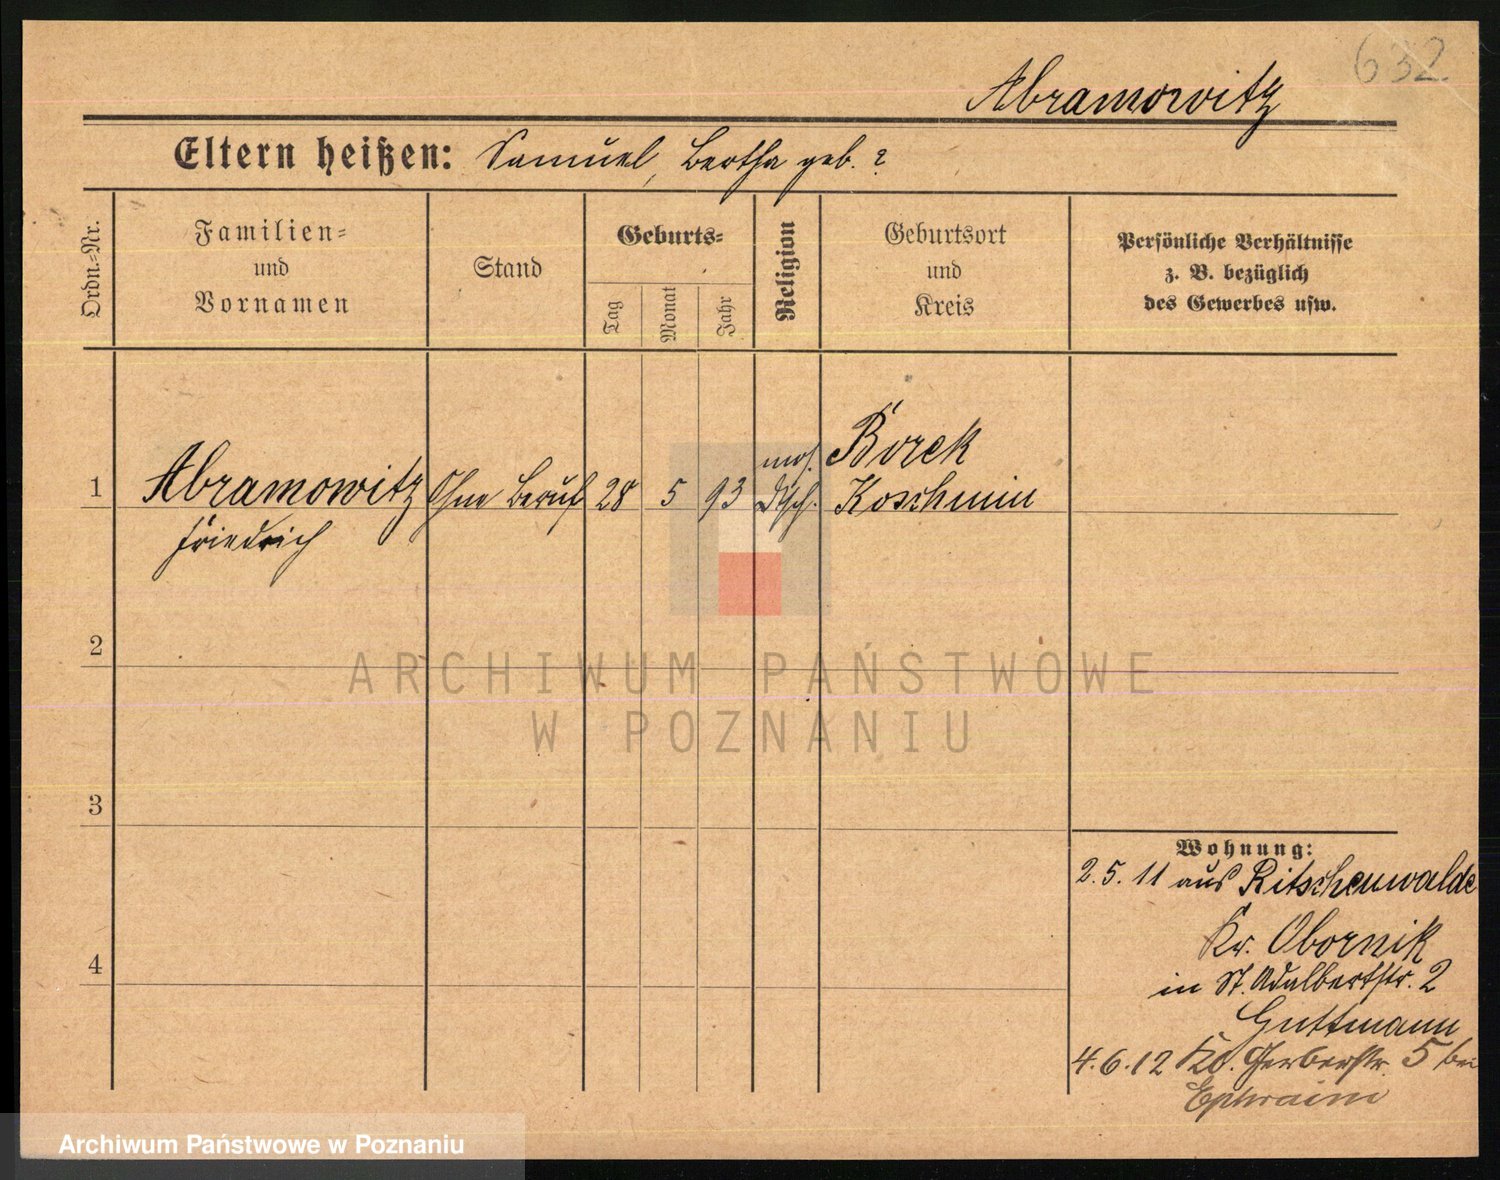 632.
Abramowitz
Eltern heißen: Samuel, Bertha geb. ?
Ordn.=Nr.
Familien=
und
Vornamen
Stand
Geburts=
Tag
Monat
Jahr
Religion
Geburtsort
und
Kreis
Persönliche Verhältnisse
z. B. bezüglich
des Gewerbes usw.
mos. Borek
1 Abramowitz Ohne Beruf 28 5 93 dtsch. Koschmin
Friedrich
2
ARCHIWUM PAŃSTWOWE
W POZNANIU
3
Wohnung:
2.5.11 aus Ritschenwalde
Kr. Obornik
4
in St. Adalbertstr. 2
Guttmann
4.6.12 Kl. Gerberstr. 5 bei
Ephraim
Archiwum Państwowe w Poznaniu